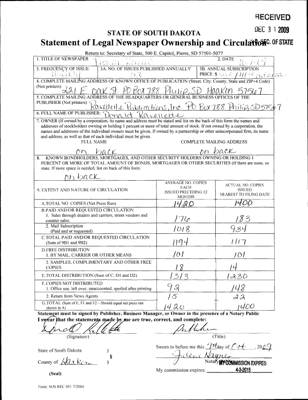 RECEIVED
DEC 31 2009
STATE OF SOUTH DAKOTA
Statement of Legal Newspaper Ownership and Circulation
SEC. OF STATE
Return to: Secretary of State, 500 E. Capitol, Pierre, SD 57501-5077
1. TITLE OF NEWSPAPER
2. DATE
3. FREQUENCY OF ISSUE
3A. NO. OF ISSUES PUBLISHED ANNUALLY
3B. ANNUAL SUBSCRIPTION
PRICE: $
4. COMPLETE MAILING ADDRESS OF KNOWN OFFICE OF PUBLICATION (Street, City, County, State and ZIP+4 Code)
(Not printers) 221 E. Oak St PO Box 788 Philip, SD Haakon 57567
5. COMPLETE MAILING ADDRESS OF THE HEADQUARTERS OF GENERAL BUSINESS OFFICES OF THE
PUBLISHER (Not printers) Ravellette Publications, Inc PO Box 788 Philip SD 57567
6. FULL NAME OF PUBLISHER: Donald Ravellette
7. OWNER (If owned by a corporation, its name and address must be stated and list on the back of this form the names and
addresses of stockholders owning or holding 1 percent or more of total amount of stock. If not owned by a corporation, the
names and addresses of the individual owners must be given. If owned by a partnership or other unincorporated firm, its name
and address, as well as that of each individual must be given.
FULL NAME COMPLETE MAILING ADDRESS
on back on back
8. KNOWN BONDHOLDERS, MORTGAGES, AND OTHER SECURITY HOLDERS OWNING OR HOLDING 1
PERCENT OR MORE OF TOTAL AMOUNT OF BONDS, MORTGAGES OR OTHER SECURITIES (If there are none, so
state. If more space is needed, list on back of this form).
on back
9. EXTENT AND NATURE OF CIRCULATION
AVERAGE NO. COPIES
EACH
ISSUED PRECEDING 12
MONTHS
ACTUAL NO. COPIES
ISSUED
NEAREST TO FILING DATE
A. TOTAL NO. COPIES (Net Press Run) 1420 1400
B. PAID AND/OR REQUESTED CIRCULATION
1. Sales through dealers and carriers, street vendors and
counter sales. 176 183
2. Mail Subscription
(Paid and/or requested) 1018 934
C. TOTAL PAID AND/OR REQUESTED CIRCULATION
(Sum of 9B1 and 9B2) 1194 1117
D. FREE DISTRIBUTION
1. BY MAIL, CARRIER OR OTHER MEANS 101 101
2. SAMPLES, COMPLIMENTARY AND OTHER FREE
COPIES 18 14
E. TOTAL DISTRIBUTION (Sum of C, D1 and D2) 1313 1230
F. COPIES NOT DISTRIBUTED
1. Office use, left over, unaccounted, spoiled after printing 92 148
2. Return from News Agents 15 22
G. TOTAL (Sum of E, F1 and F2 - Should equal net press run
shown in A) 1420 1400
Statement must be signed by Publisher, Business Manager, or Owner in the presence of a Notary Public
I swear that the statements made by me are true, correct, and complete:
(Signature) (Title)
State of South Dakota )
County of Haakon )
(Seal)
Sworn to before me this
Notary
MY COMMISSION EXPIRES
My commission expires: 4-3-2015